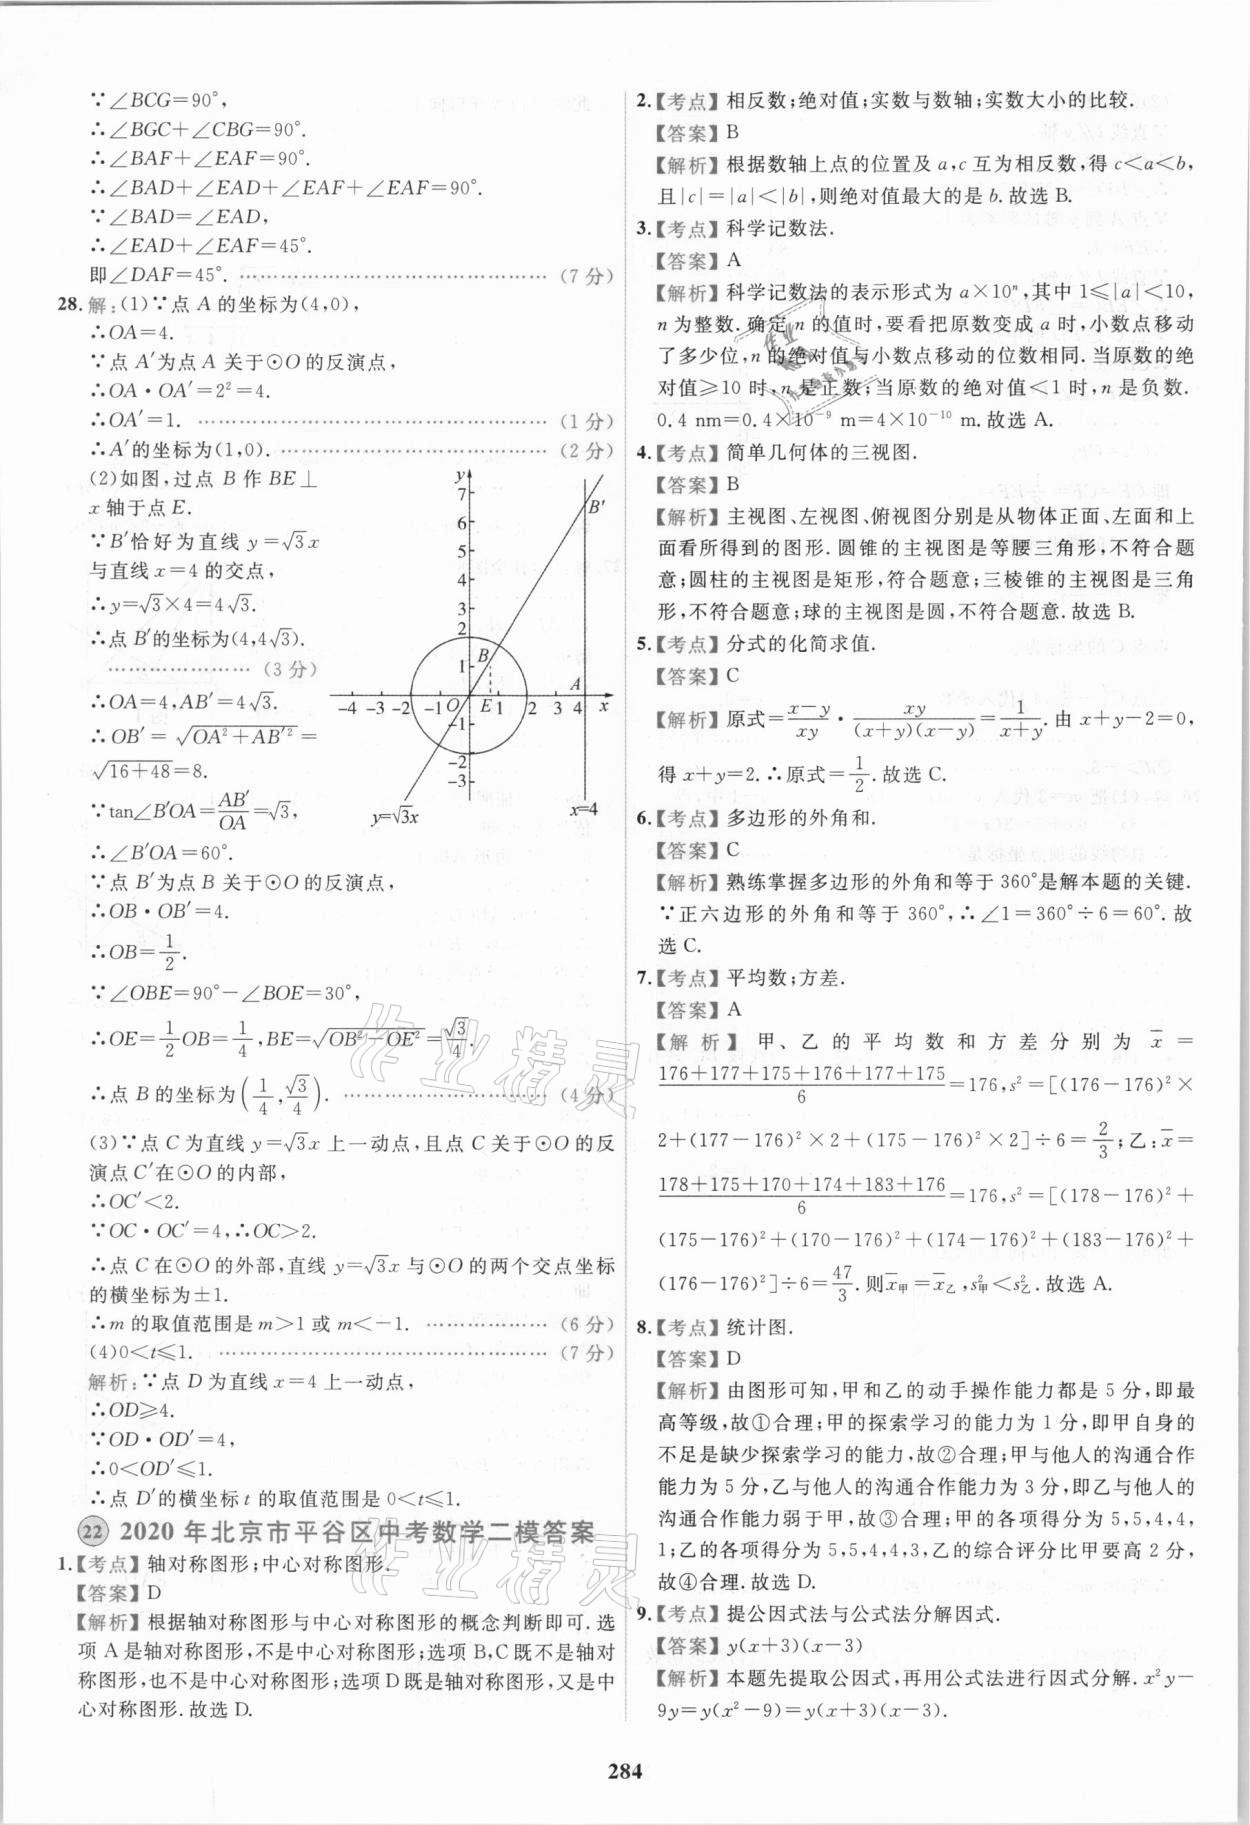 ∵∠BCG=90°,
∴∠BGC+∠CBG=90°.
∴∠BAF+∠EAF=90°.
∴∠BAD+∠EAD+∠EAF+∠EAF=90°.
∵∠BAD=∠EAD,
∴∠EAD+∠EAF=45°.
即∠DAF=45°. …………………………………… (7分)
28.解:(1)∵点A的坐标为(4,0),
∴OA=4.
∵点A′为点A关于⊙O的反演点,
∴OA·OA′=2²=4.
∴OA′=1. …………………………………… (1分)
∴A′的坐标为(1,0). …………………………… (2分)
(2)如图,过点B作BE⊥
x轴于点E.
∵B′恰好为直线y=√3x
与直线x=4的交点,
∴y=√3×4=4√3.
∴点B′的坐标为(4,4√3).
……………… (3分)
∴OA=4,AB′=4√3.
∴OB′=√(OA²+AB′²)=
√(16+48)=8.
∵tan∠B′OA=AB′/OA=√3,
∴∠B′OA=60°.
∵点B′为点B关于⊙O的反演点,
∴OB·OB′=4.
∴OB=1/2.
∵∠OBE=90°-∠BOE=30°,
∴OE=1/2OB=1/4,BE=√(OB²-OE²)=√3/4.
∴点B的坐标为(1/4,√3/4). …………………… (4分)
y
7
6
5
4
3
2
1
B′
B
A
O E
-4 -3 -2 -1 1 2 3 4 x
-1
-2
-3
y=√3x
x=4
(3)∵点C为直线y=√3x上一动点,且点C关于⊙O的反
演点C′在⊙O的内部,
∴OC′<2.
∵OC·OC′=4,∴OC>2.
∴点C在⊙O的外部,直线y=√3x与⊙O的两个交点坐标
的横坐标为±1.
∴m的取值范围是m>1或m<-1. …………… (6分)
(4)0<t≤1. …………………………………… (7分)
解析:∵点D为直线x=4上一动点,
∴OD≥4.
∵OD·OD′=4,
∴0<OD′≤1.
∴点D′的横坐标t的取值范围是0<t≤1.
22 2020年北京市平谷区中考数学二模答案
1.【考点】轴对称图形;中心对称图形.
【答案】D
【解析】根据轴对称图形与中心对称图形的概念判断即可.选
项A是轴对称图形,不是中心对称图形;选项B,C既不是轴对
称图形,也不是中心对称图形;选项D既是轴对称图形,又是中
心对称图形.故选D.
2.【考点】相反数;绝对值;实数与数轴;实数大小的比较.
【答案】B
【解析】根据数轴上点的位置及a,c互为相反数,得c<a<b,
且|c|=|a|<|b|,则绝对值最大的是b.故选B.
3.【考点】科学记数法.
【答案】A
【解析】科学记数法的表示形式为a×10ⁿ,其中1≤|a|<10,
n为整数.确定n的值时,要看把原数变成a时,小数点移动
了多少位,n的绝对值与小数点移动的位数相同.当原数的绝
对值≥10时,n是正数;当原数的绝对值<1时,n是负数.
0.4 nm=0.4×10⁻⁹ m=4×10⁻¹⁰ m.故选A.
4.【考点】简单几何体的三视图.
【答案】B
【解析】主视图、左视图、俯视图分别是从物体正面、左面和上
面看所得到的图形.圆锥的主视图是等腰三角形,不符合题
意;圆柱的主视图是矩形,符合题意;三棱锥的主视图是三角
形,不符合题意;球的主视图是圆,不符合题意.故选B.
5.【考点】分式的化简求值.
【答案】C
【解析】原式=(x-y)/xy·xy/((x+y)(x-y))=1/(x+y).由x+y-2=0,
得x+y=2.∴原式=1/2.故选C.
6.【考点】多边形的外角和.
【答案】C
【解析】熟练掌握多边形的外角和等于360°是解本题的关键.
∵正六边形的外角和等于360°,∴∠1=360°÷6=60°.故
选C.
7.【考点】平均数;方差.
【答案】A
【解析】甲、乙的平均数和方差分别为x̄=
(176+177+175+176+177+175)/6=176,s²=[(176-176)²×
2+(177-176)²×2+(175-176)²×2]÷6=2/3;乙:x̄=
(178+175+170+174+183+176)/6=176,s²=[(178-176)²+
(175-176)²+(170-176)²+(174-176)²+(183-176)²+
(176-176)²]÷6=47/3.则x̄甲=x̄乙,s²甲<s²乙.故选A.
8.【考点】统计图.
【答案】D
【解析】由图形可知,甲和乙的动手操作能力都是5分,即最
高等级,故①合理;甲的探索学习的能力为1分,即甲自身的
不足是缺少探索学习的能力,故②合理;甲与他人的沟通合作
能力为5分,乙与他人的沟通合作能力为3分,即乙与他人的
沟通合作能力弱于甲,故③合理;甲的各项得分为5,5,4,4,
1;乙的各项得分为5,5,4,4,3,乙的综合评分比甲要高2分,
故④合理.故选D.
9.【考点】提公因式法与公式法分解因式.
【答案】y(x+3)(x-3)
【解析】本题先提取公因式,再用公式法进行因式分解.x²y-
9y=y(x²-9)=y(x+3)(x-3).
作业精灵
作业精灵
284